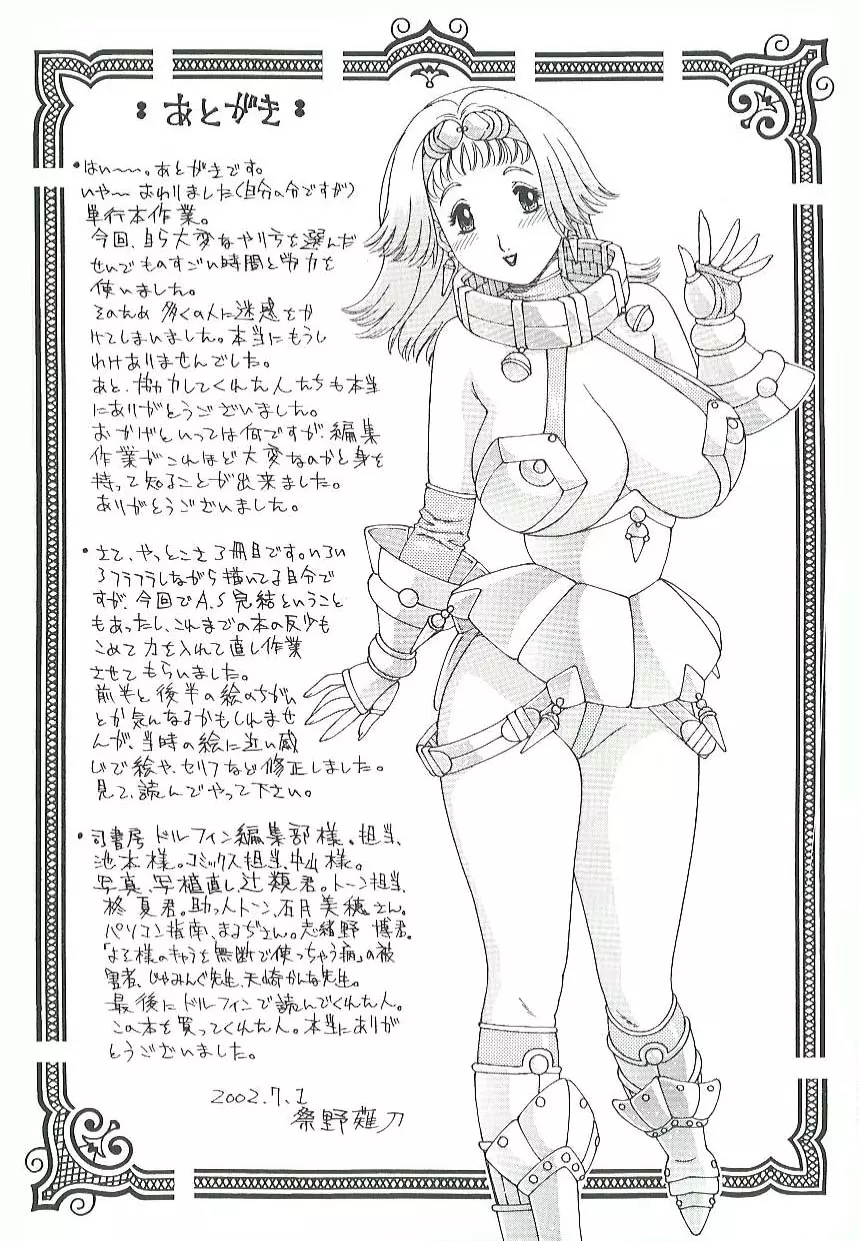 あとがき
・はい〜〜。あとがきです。
いや〜 おわりました(自分の分ですが)
単行本作業。
今回、自ら大変なやり方を選んだ
せいでものすごい時間と労力を
使いました。
そのため 多くの人に迷惑をか
けてしまいました。本当にもうし
わけありませんでした。
あと、協力してくれた人たちも本当
にありがとうございました。
おかげといっては何ですが、編集
作業がこれほど大変なのかと身を
持って知ることが出来ました。
ありがとうございました。
・さて、やっとこさ3冊目です。いろい
ろフラフラしながら描いてる自分で
すが、今回でA.S完結ということ
もあったし、これまでの本の反省も
こめて力を入れて直し作業
させてもらいました。
前半と後半の絵のちがい
とか気になるかもしれませ
んが、当時の絵に近い感
じで絵や、セリフなど修正しました。
見て、読んでやって下さい。
・司書房 ドルフィン編集部様。担当、
池本様。コミックス担当、中山様。
写真、写植直し、辻類君。トーン担当、
柊夏君。助っ人トーン、石月美穂さん。
パソコン指南、まるぢさん。志緒野 博君。
「よそ様のキャラを無断で使っちゃう病」の被
害者、じゃみんぐ先生、天崎かんな先生。
最後にドルフィンで読んでくれた人。
この本を買ってくれた人。本当にありが
とうございました。
2002.7.1
祭野薙刀